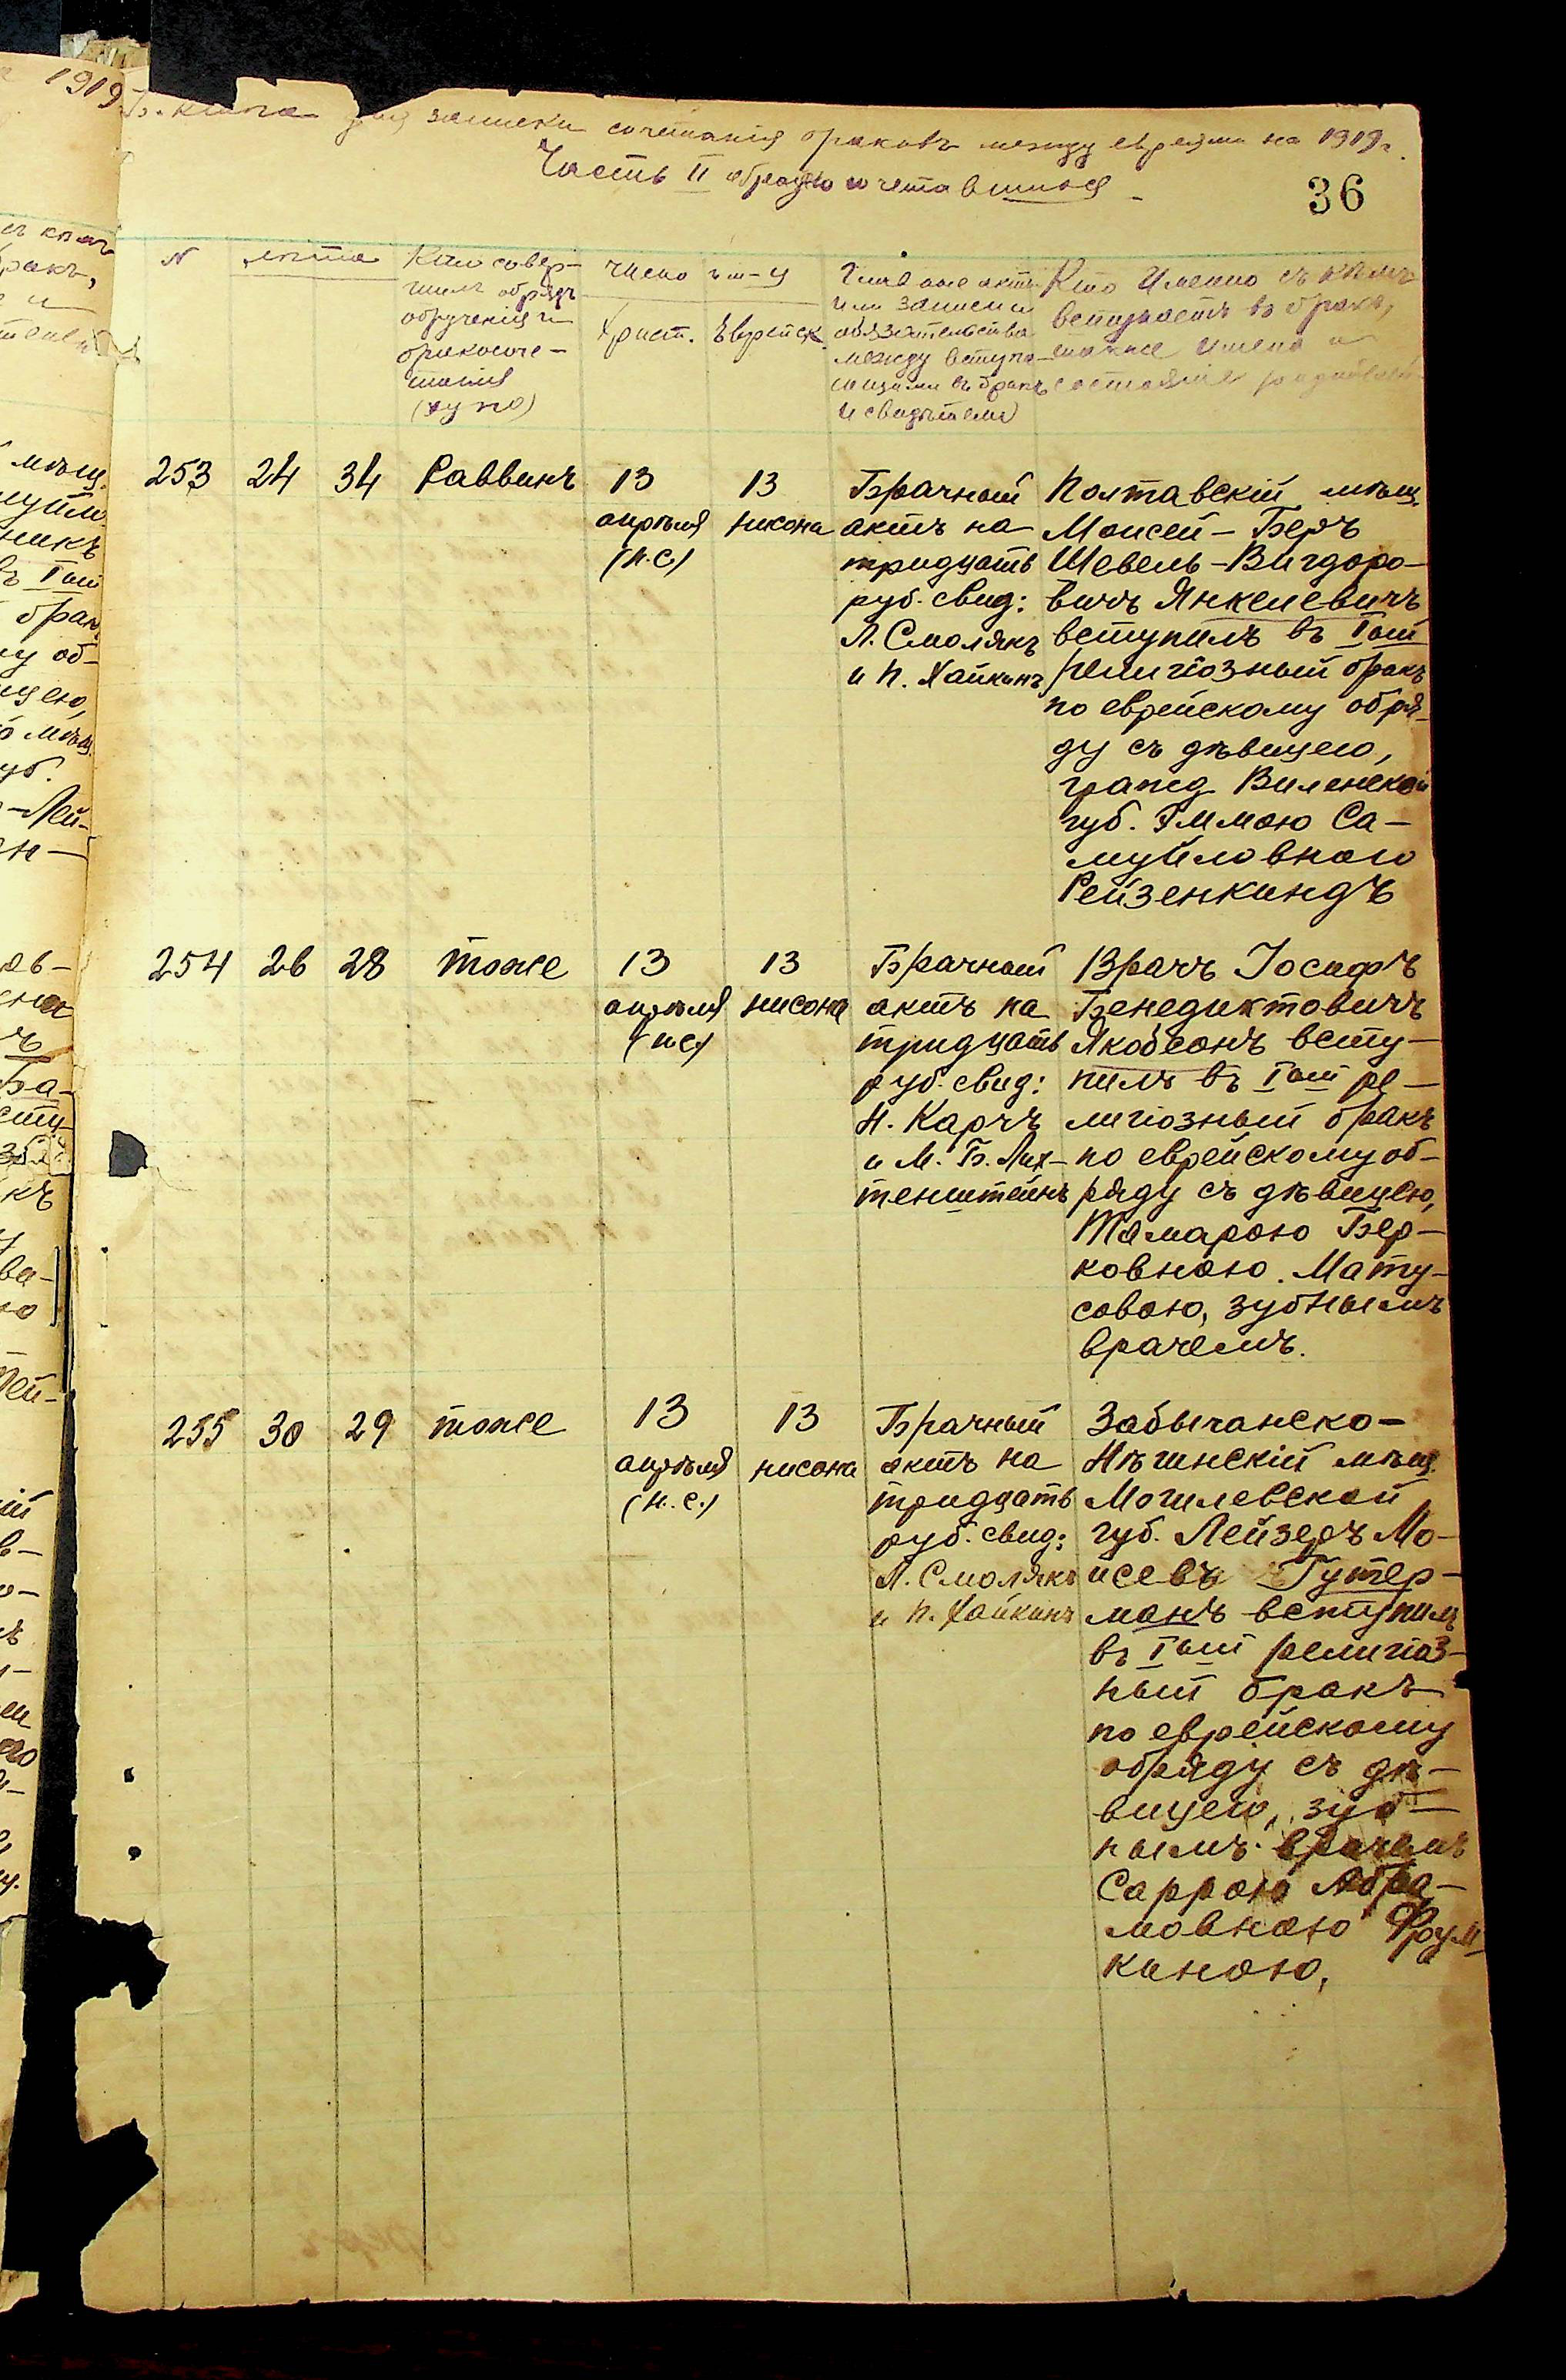 1919
книга для записки сочетанія браковъ между евреями на 1919г.
Часть II о бракосочетавшихся
36
N
лѣта
Кто совер-
шилъ обрядъ
обрученія и
бракосоче-
танія
(хупо)
число и м-ц
Христ.
Еврейск.
Главные акты
или записи и
обязательства
между вступа-
ющими въ бракъ
и свидѣтели
Кто именно съ кѣмъ
вступаетъ въ бракъ,
также имена и
состояніе родителей
253
24
34
Раввинъ
13
апрѣля
(н.с.)
13
нисона
Брачный
актъ на
тридцать
руб. свид:
Л. Смолякъ
и П. Хайкинъ
Полтавскій мѣщ.
Моисей-Беръ
Шевель-Вигдоро-
вичъ Янкелевичъ
вступилъ въ Iый
религіозный бракъ
по еврейскому обря-
ду съ дѣвицею,
гражд. Виленской
губ. Эммою Са-
муйловною
Рейзенкиндъ
254
26
28
тоже
13
апрѣля
(н.с.)
13
нисона
Брачный
актъ на
тридцать
руб. свид:
Н. Карчъ
и М. Б. Лих-
тенштейнъ
Врачъ Іосифъ
Бенедиктовичъ
Якобсонъ всту-
пилъ въ Iый ре-
лигіозный бракъ
по еврейскому об-
ряду съ дѣвицею,
Тамарою Бер-
ковною Мату-
совою, зубнымъ
врачемъ.
255
30
29
тоже
13
апрѣля
(н.с.)
13
нисона
Брачный
актъ на
тридцать
руб. свид:
Л. Смолякъ
и П. Хайкинъ
Забычанско-
Нѣгинскій мѣщ.
Могилевской
губ. Лейзеръ Мо-
исевъ Гутер-
манъ вступилъ
въ Iый религіоз-
ный бракъ
по еврейскому
обряду съ дѣ-
вицею, зуб-
нымъ врачемъ
Саррою Абра-
мовною Фрум-
киною,